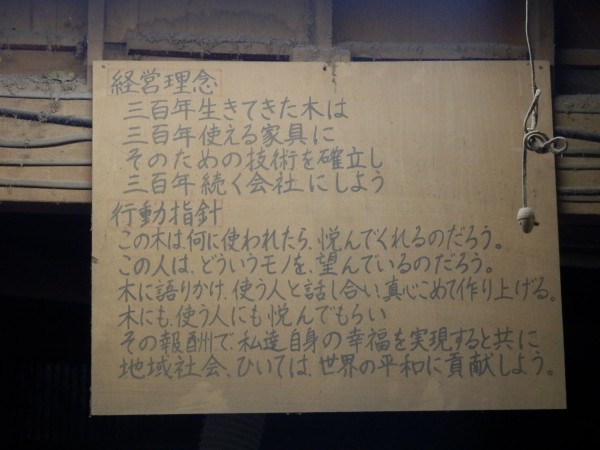 経営理念
三百年生きてきた木は
三百年使える家具に
そのための技術を確立し
三百年続く会社にしよう
行動指針
この木は、何に使われたら、悦んでくれるのだろう。
この人は、どういうモノを、望んでいるのだろう。
木に語りかけ、使う人と話し合い、真心こめて作り上げる。
木にも、使う人にも悦んでもらい
その報酬で、私達自身の幸福を実現すると共に
地域社会、ひいては、世界の平和に貢献しよう。